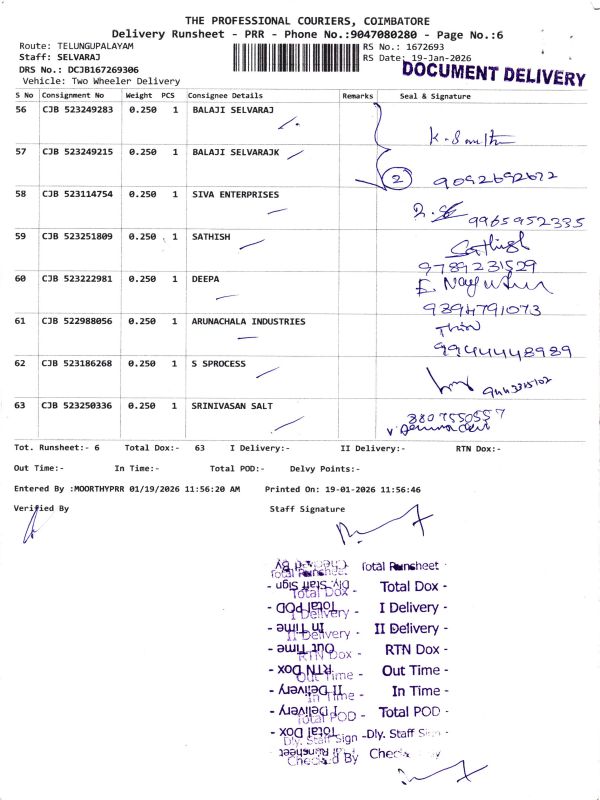 THE PROFESSIONAL COURIERS, COIMBATORE
Delivery Runsheet - PRR - Phone No.:9047080280 - Page No.:6
Route: TELUNGUPALAYAM
RS No.: 1672693
Staff: SELVARAJ
RS Date: 19-Jan-2026
DRS No.: DCJB167269306
DOCUMENT DELIVERY
Vehicle: Two Wheeler Delivery
S No Consignment No Weight PCS Consignee Details Remarks Seal & Signature
56 CJB 523249283 0.250 1 BALAJI SELVARAJ
57 CJB 523249215 0.250 1 BALAJI SELVARAJK
2 9092692672
58 CJB 523114754 0.250 1 SIVA ENTERPRISES
9965952335
59 CJB 523251809 0.250 1 SATHISH
Sathish
9789231529
60 CJB 523222981 0.250 1 DEEPA
9394791073
61 CJB 522988056 0.250 1 ARUNACHALA INDUSTRIES
9944448989
62 CJB 523186268 0.250 1 S SPROCESS
63 CJB 523250336 0.250 1 SRINIVASAN SALT
8807550557
Tot. Runsheet:- 6 Total Dox:- 63 I Delivery:- II Delivery:- RTN Dox:-
Out Time:- In Time:- Total POD:- Delvy Points:-
Entered By :MOORTHYPRR 01/19/2026 11:56:20 AM Printed On: 19-01-2026 11:56:46
Verified By Staff Signature
Total Runsheet -
Total Dox -
I Delivery -
II Delivery -
RTN Dox -
Out Time -
In Time -
Total POD -
Dly. Staff Sign -
Checked By